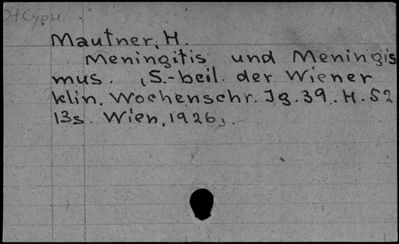 Mautner, H.
Meningitis und Meningis
mus. (S.-beil. der Wiener
klin. Wochenschr. Jg. 39. H. 52
13s. Wien, 1926).